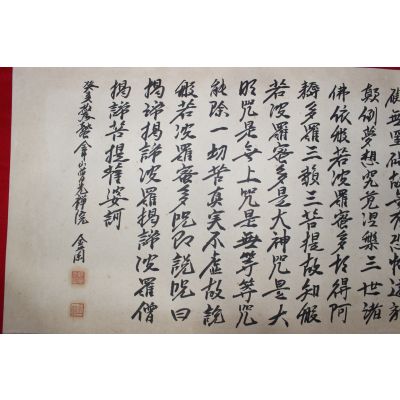 無罣碍故無有恐怖遠離
顛倒夢想究竟涅槃三世諸
佛依般若波羅蜜多故得阿
耨多羅三藐三菩提故知般
若波羅蜜多是大神咒是大
明咒是無上咒是無等等咒
能除一切苦真実不虛故說
般若波羅蜜多咒即說咒曰
揭諦揭諦波羅揭諦波羅僧
揭諦菩提薩婆訶
癸亥 金山 光禪院 金